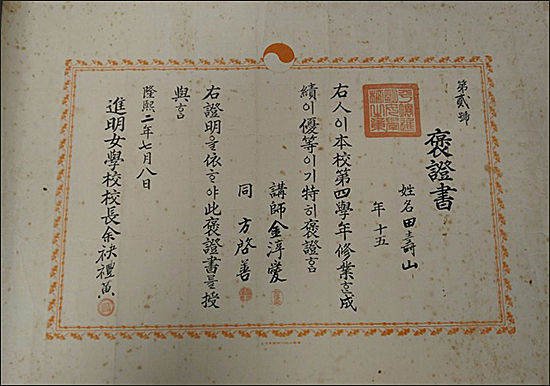 第貳號
褒證書
姓名 田壽山
年 十五
右人이本校第四學年修業ᄒᆞᆫ成
績이優等이기特히褒證홈
講師 金淳愛
同 方啓善
右證明을依ᄒᆞ야此褒證書를授
與홈
隆熙二年七月八日
進明女學校校長余袂禮黃